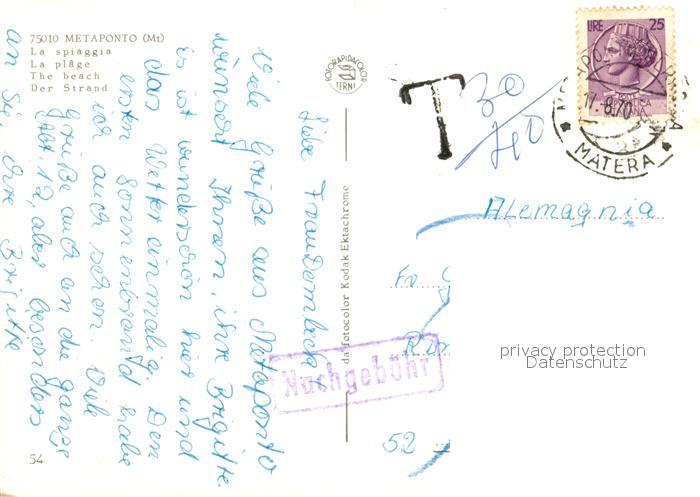 75010 METAPONTO (Mt)
La spiaggia
La plâge
The beach
Der Strand
ROTORAPIDACOLOR
TERNI
T
30
/40
LIRE 25
POSTE
REPUBBLICA
ITALIANA
17-8.70
MATERA
Alemagnia
Fr.
52
privacy protection
Datenschutz
Nachgebühr
da fotocolor Kodak Ektachrome
54
Liebe
Viele Grüße aus Metaponto
wünscht Ihnen, ihre Brigitte.
Es ist wunderschön hier und
das Wetter einmalig. Den
ersten Sonnenbrand habe
ich auch schon. Viele
Grüße auch an die ganze
Abt. 12, aber besonders
an Sie ihre Brigitte